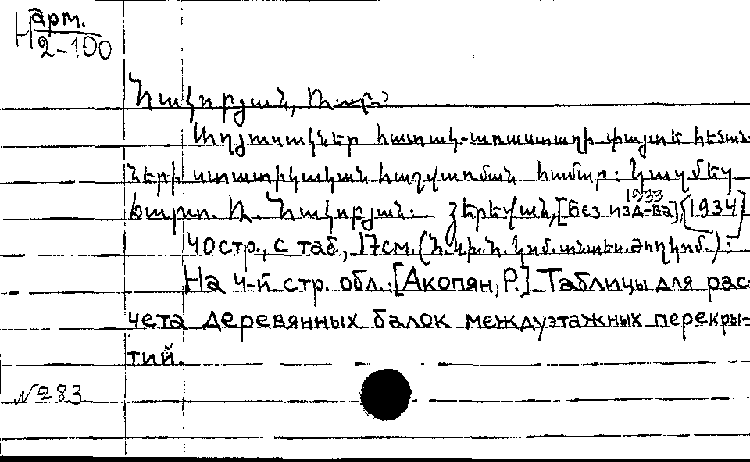 Н арм.
2-100
Հակոբյան, Ռ
Աղյուսակներ հատակ-առաստաղի փայտե հեծան-
ների ստատիկական հաշվառման համար: Կազմեց
Ռ. Հակոբյան: Յերեվան, [без изд-ва], 1933 [1934]
40 стр., с таб., 17см. (Հ.Խ.Ս.Հ. կոմ. տնտես. ժողկոմ.):
На 4-й стр. обл.: [Акопян, Р.] Таблицы для рас-
чета деревянных балок междуэтажных перекры-
тий.
№ 283